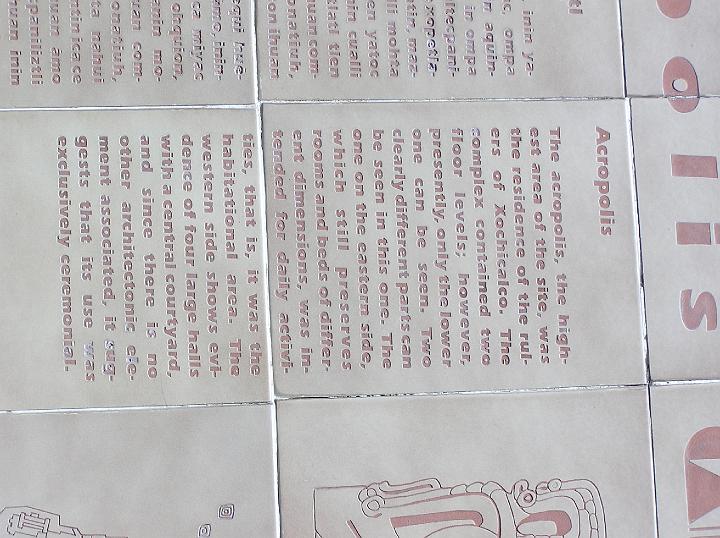 olis
ompa
in ompa
mohta
yatoc
cualli
tlen
onatiuh,
ihuan
miyac
onatiuh,
nahui
ce
inin
Acropolis
The acropolis, the high-
est area of the site, was
the residence of the rul-
ers of Xochicalco. The
complex contained two
floor levels; however,
presently, only the lower
one can be seen. Two
clearly different parts can
be seen in this one. The
one on the eastern side,
which still preserves
rooms and beds of differ-
ent dimensions, was in-
tended for daily activi-
ties, that is, it was the
habitational area. The
western side shows evi-
dence of four large halls
with a central courtyard,
and since there is no
other architectonic ele-
ment associated, it sug-
gests that its use was
exclusively ceremonial.